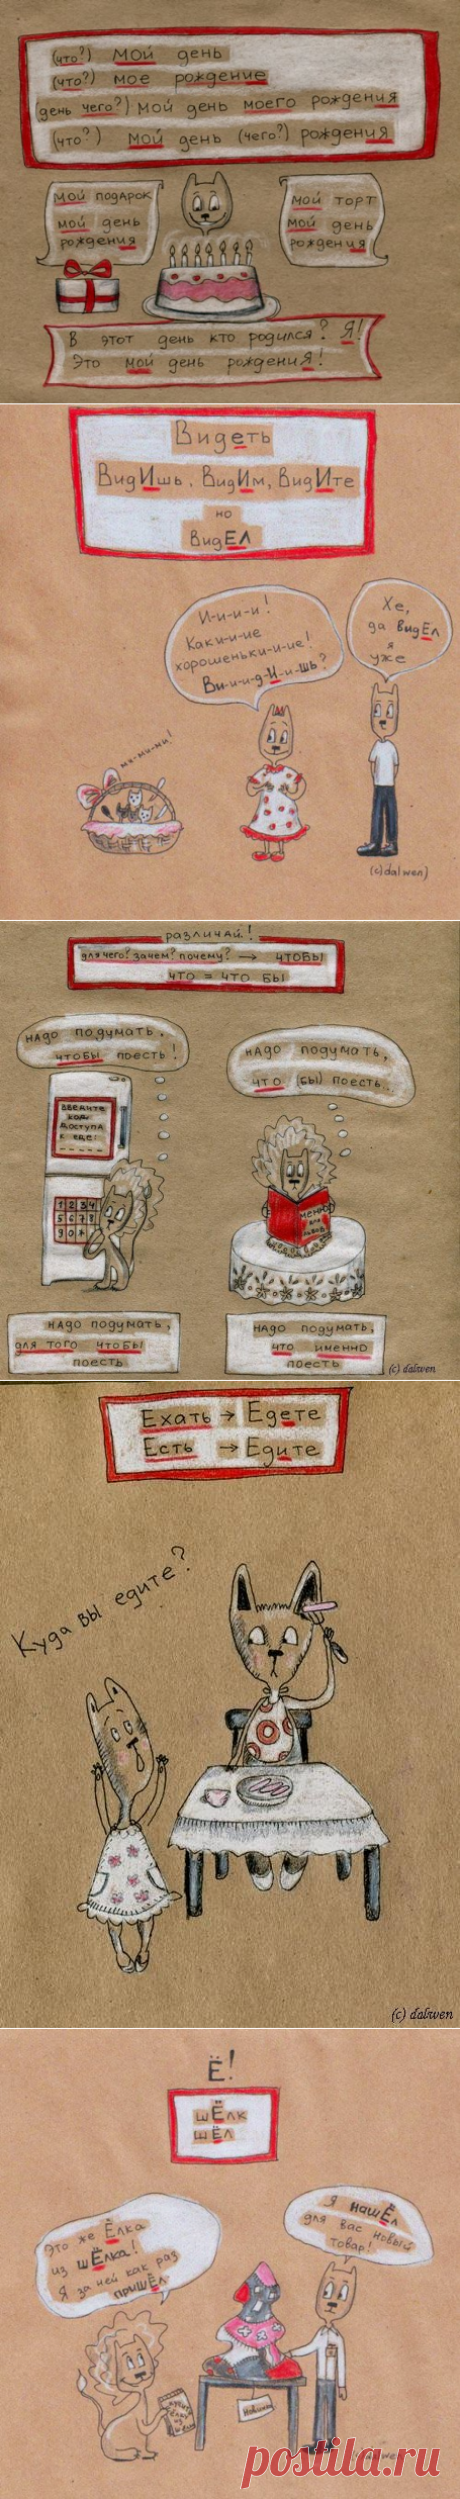 (что?) мой день
(что?) мое рождение
(день чего?) мой день моего рождения
(что?) мой день (чего?) рождения
мой подарок
мой день
рождения
мой торт
мой день
рождения
В этот день кто родился? Я!
Это мой день рождениЯ!
Видеть
ВидИшь, ВидИм, ВидИте
но
ВидЕЛ
И-и-и-и!
Каки-и-ие
хорошеньки-и-ие!
Ви-и-и-д-И-и-шь?
Хе,
да видЕл
я
уже
ми-ми-ми!
(c) dalwen)
различай!
для чего? зачем? почему? → чтобы
что = что бы
надо подумать,
чтобы поесть!
надо подумать,
что (бы) поесть..
введите
код
доступа
к еде:
1 2 3 4
5 6 7 8
9 0 *
меню
для
львов
надо подумать,
для того чтобы
поесть
надо подумать,
что именно
поесть
(c) dalwen
Ехать → Едете
Есть → Едите
Куда вы едите?
(c) dalwen
Ё!
шЁлк
шЁл
Это же Ёлка
из шЁлка!
Я за ней как раз
пришЁл
Я нашЁл
для вас новый
товар!
купить
ёлку
из
шёлка
Новинка
(c) dalwen
postila.ru